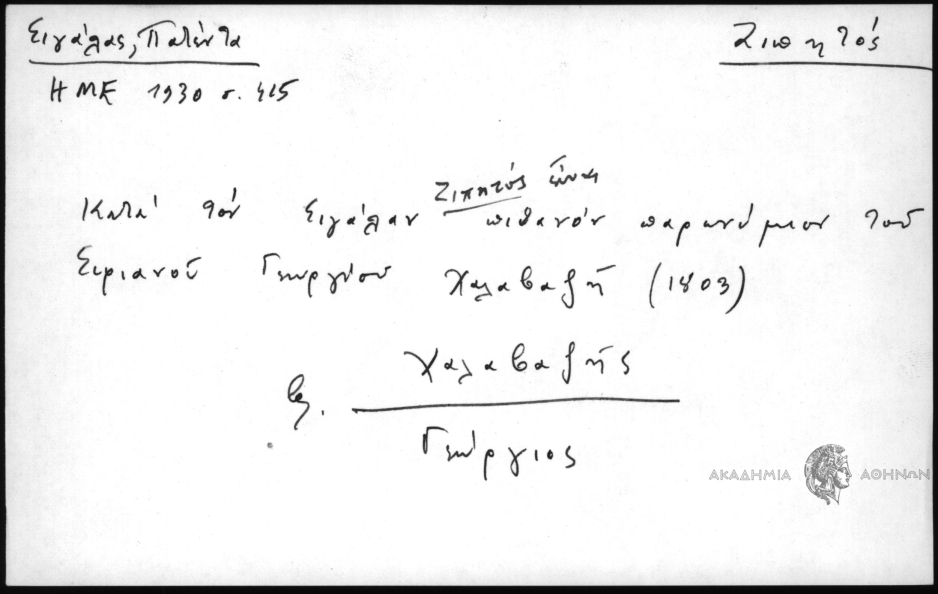 Σιγάλας, Πατέντα
Ζιπητός
ΗΜΕ 1930 σ. 415
Κατά τόν Σιγάλαν Ζιπητός είναι πιθανόν παρωνύμιον τού
Σιριανού Γεωργίου Χαλαβαζή (1803)
βλ. Χαλαβαζής
Γεώργιος
ΑΚΑΔΗΜΙΑ ΑΘΗΝΩΝ